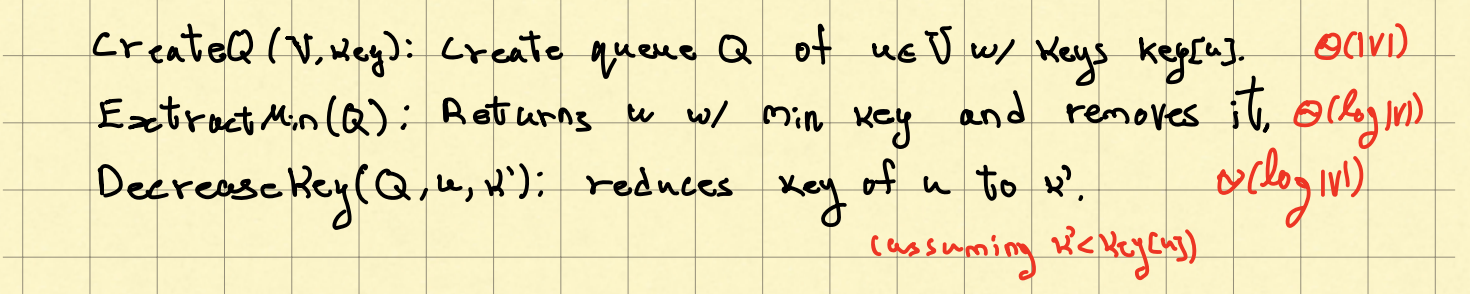 CreateQ (V, key): Create queue Q of u∈V w/ keys key[u]. Θ(|V|)
ExtractMin(Q): Returns u w/ min key and removes it, Θ(log|V|)
DecreaseKey(Q, u, k'): reduces key of u to k'. Θ(log|V|)
(assuming k'<key[u])